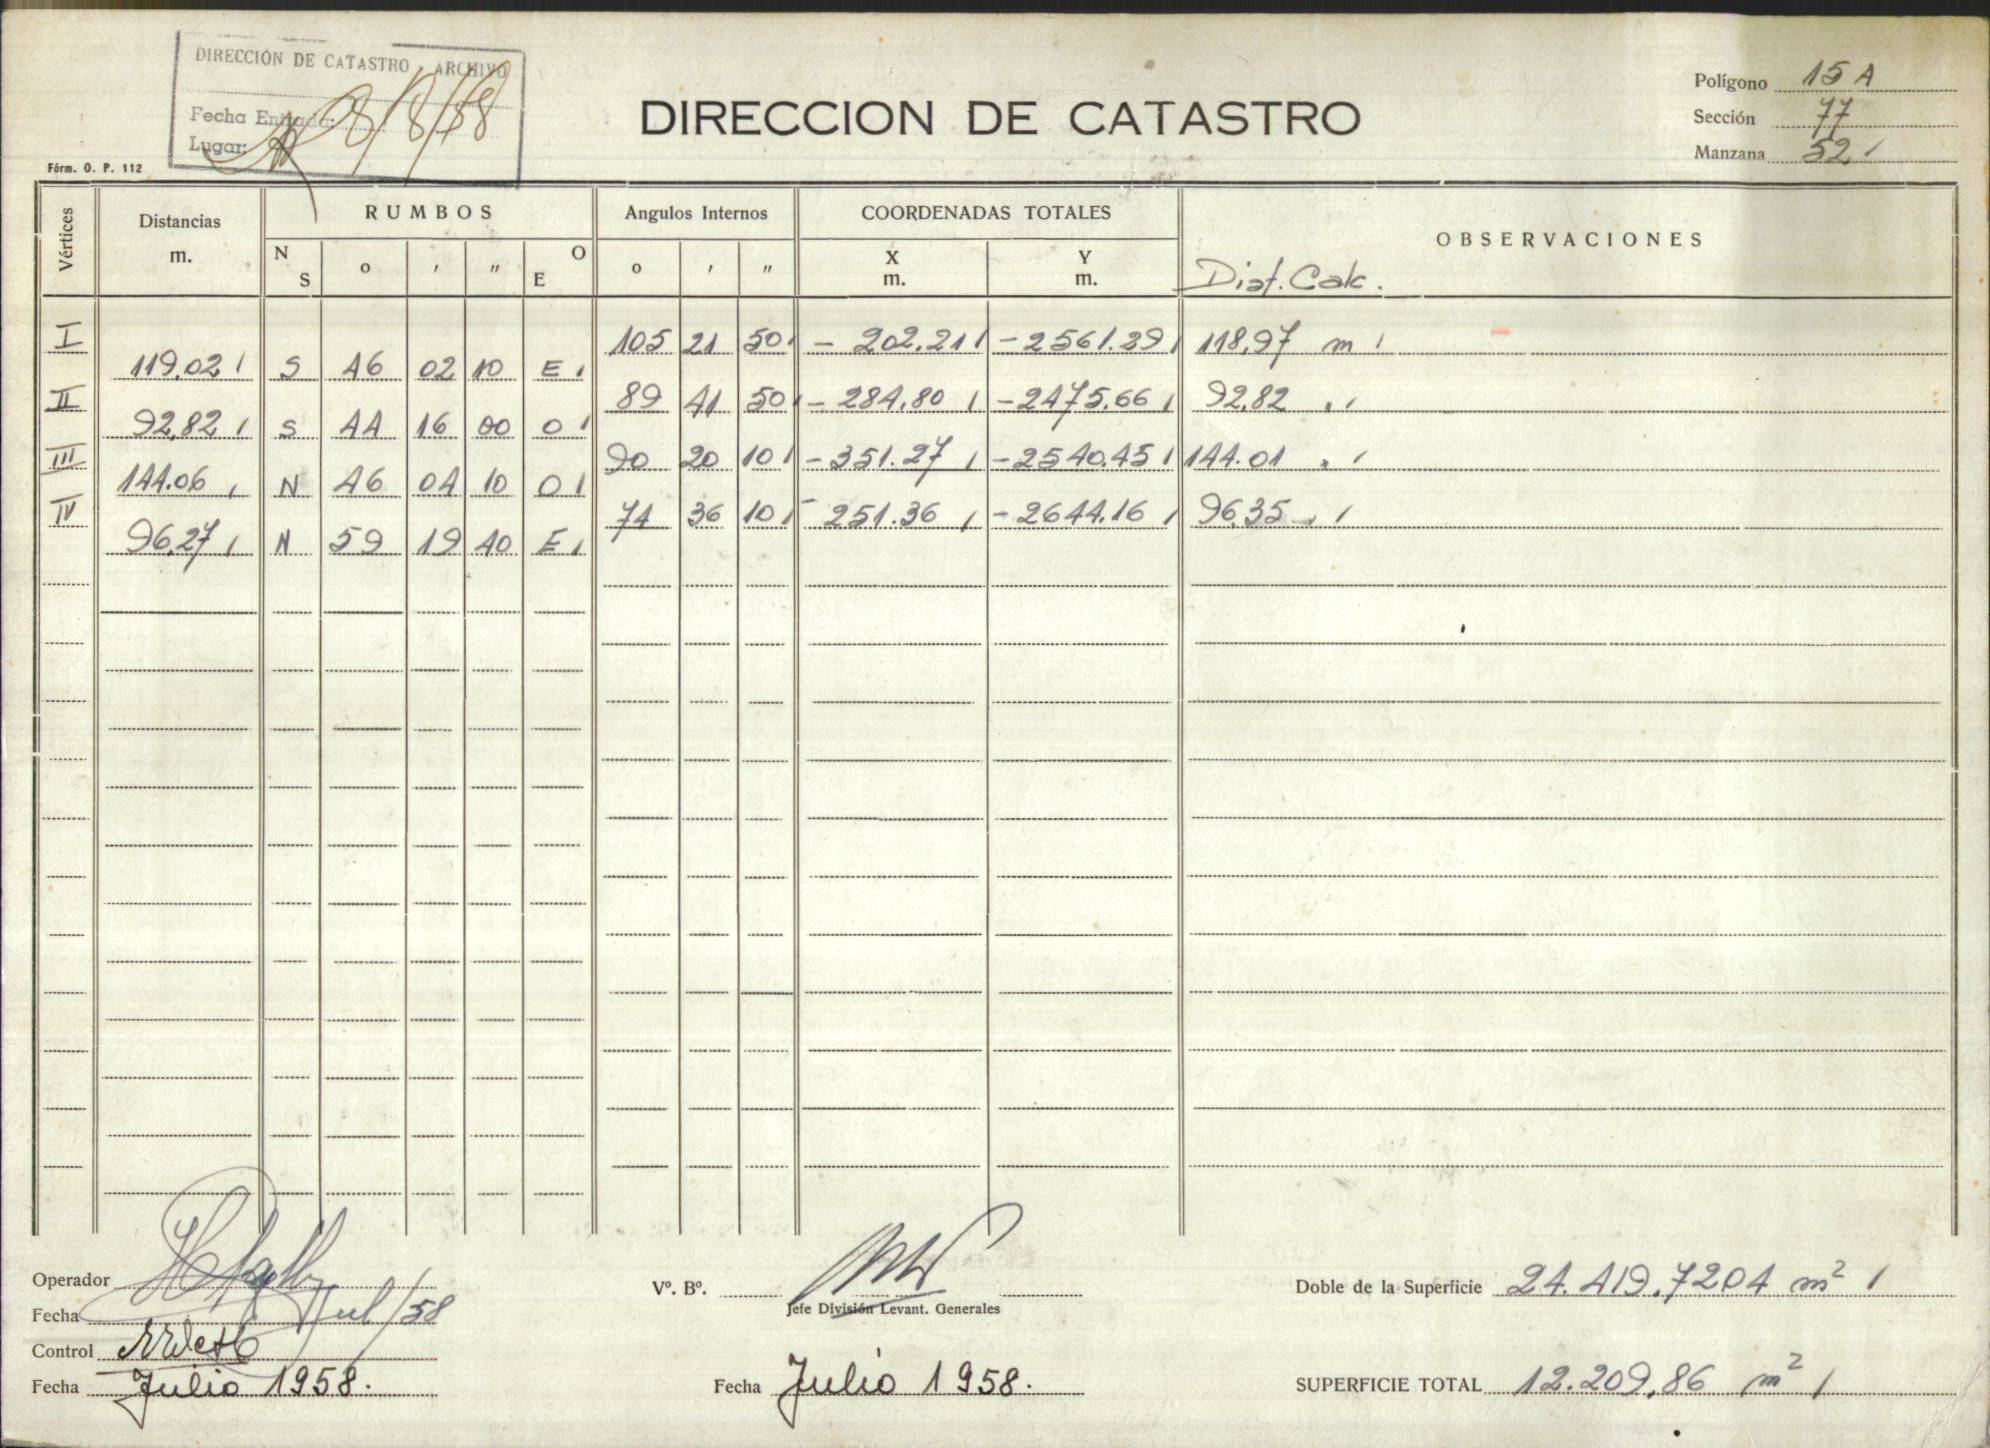 DIRECCIÓN DE CATASTRO ARCHIVO
Fecha Entrada: 8/8/58
Lugar:
Fórm. O. P. 112
DIRECCION DE CATASTRO
Polígono 15 A
Sección 77
Manzana 52
Vértices Distancias m. RUMBOS Angulos Internos COORDENADAS TOTALES OBSERVACIONES
N S o ' " O E o ' " X m. Y m. Dist. Calc.
I 105 21 50 - 202.21 - 2561.29 118,97 m
119,02 S 46 02 10 E
II 89 41 50 - 284.80 - 2475.66 92.82 "
92,82 S 44 16 00 O
III 90 20 10 - 351.27 - 2540.45 144.01 "
144.06 N 46 04 10 O
IV 74 36 10 - 251.36 - 2644.16 96.35 "
96,27 N 59 19 40 E
Operador
Fecha Jul/58
Control
Fecha Julio 1958.
Vº. Bº.
Jefe División Levant. Generales
Fecha Julio 1958.
Doble de la Superficie 24.419.7204 m²
SUPERFICIE TOTAL 12.209,86 m²